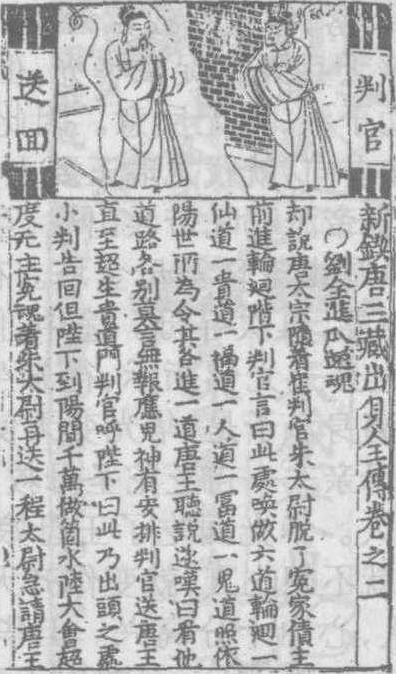 判官
送回
新鍥唐三藏出身全傳卷之二
○劉全進瓜還魂
却說唐太宗隨着崔判官朱太尉脫了冤家債主
前進輪廻階下判官言曰此處喚做六道輪廻一
仙道一貴道一福道一人道一富道一鬼道照依
陽世所為令其各進一道唐王聽說嘆曰看他
道路各别莫言無報應鬼神有安排判官送唐王
直至超生貴道門判官呼陛下曰此乃出頭之處
小判告回但陛下到陽間千萬做箇水陸大會超
度无主冤魂着朱太尉再送一程太尉急請唐王